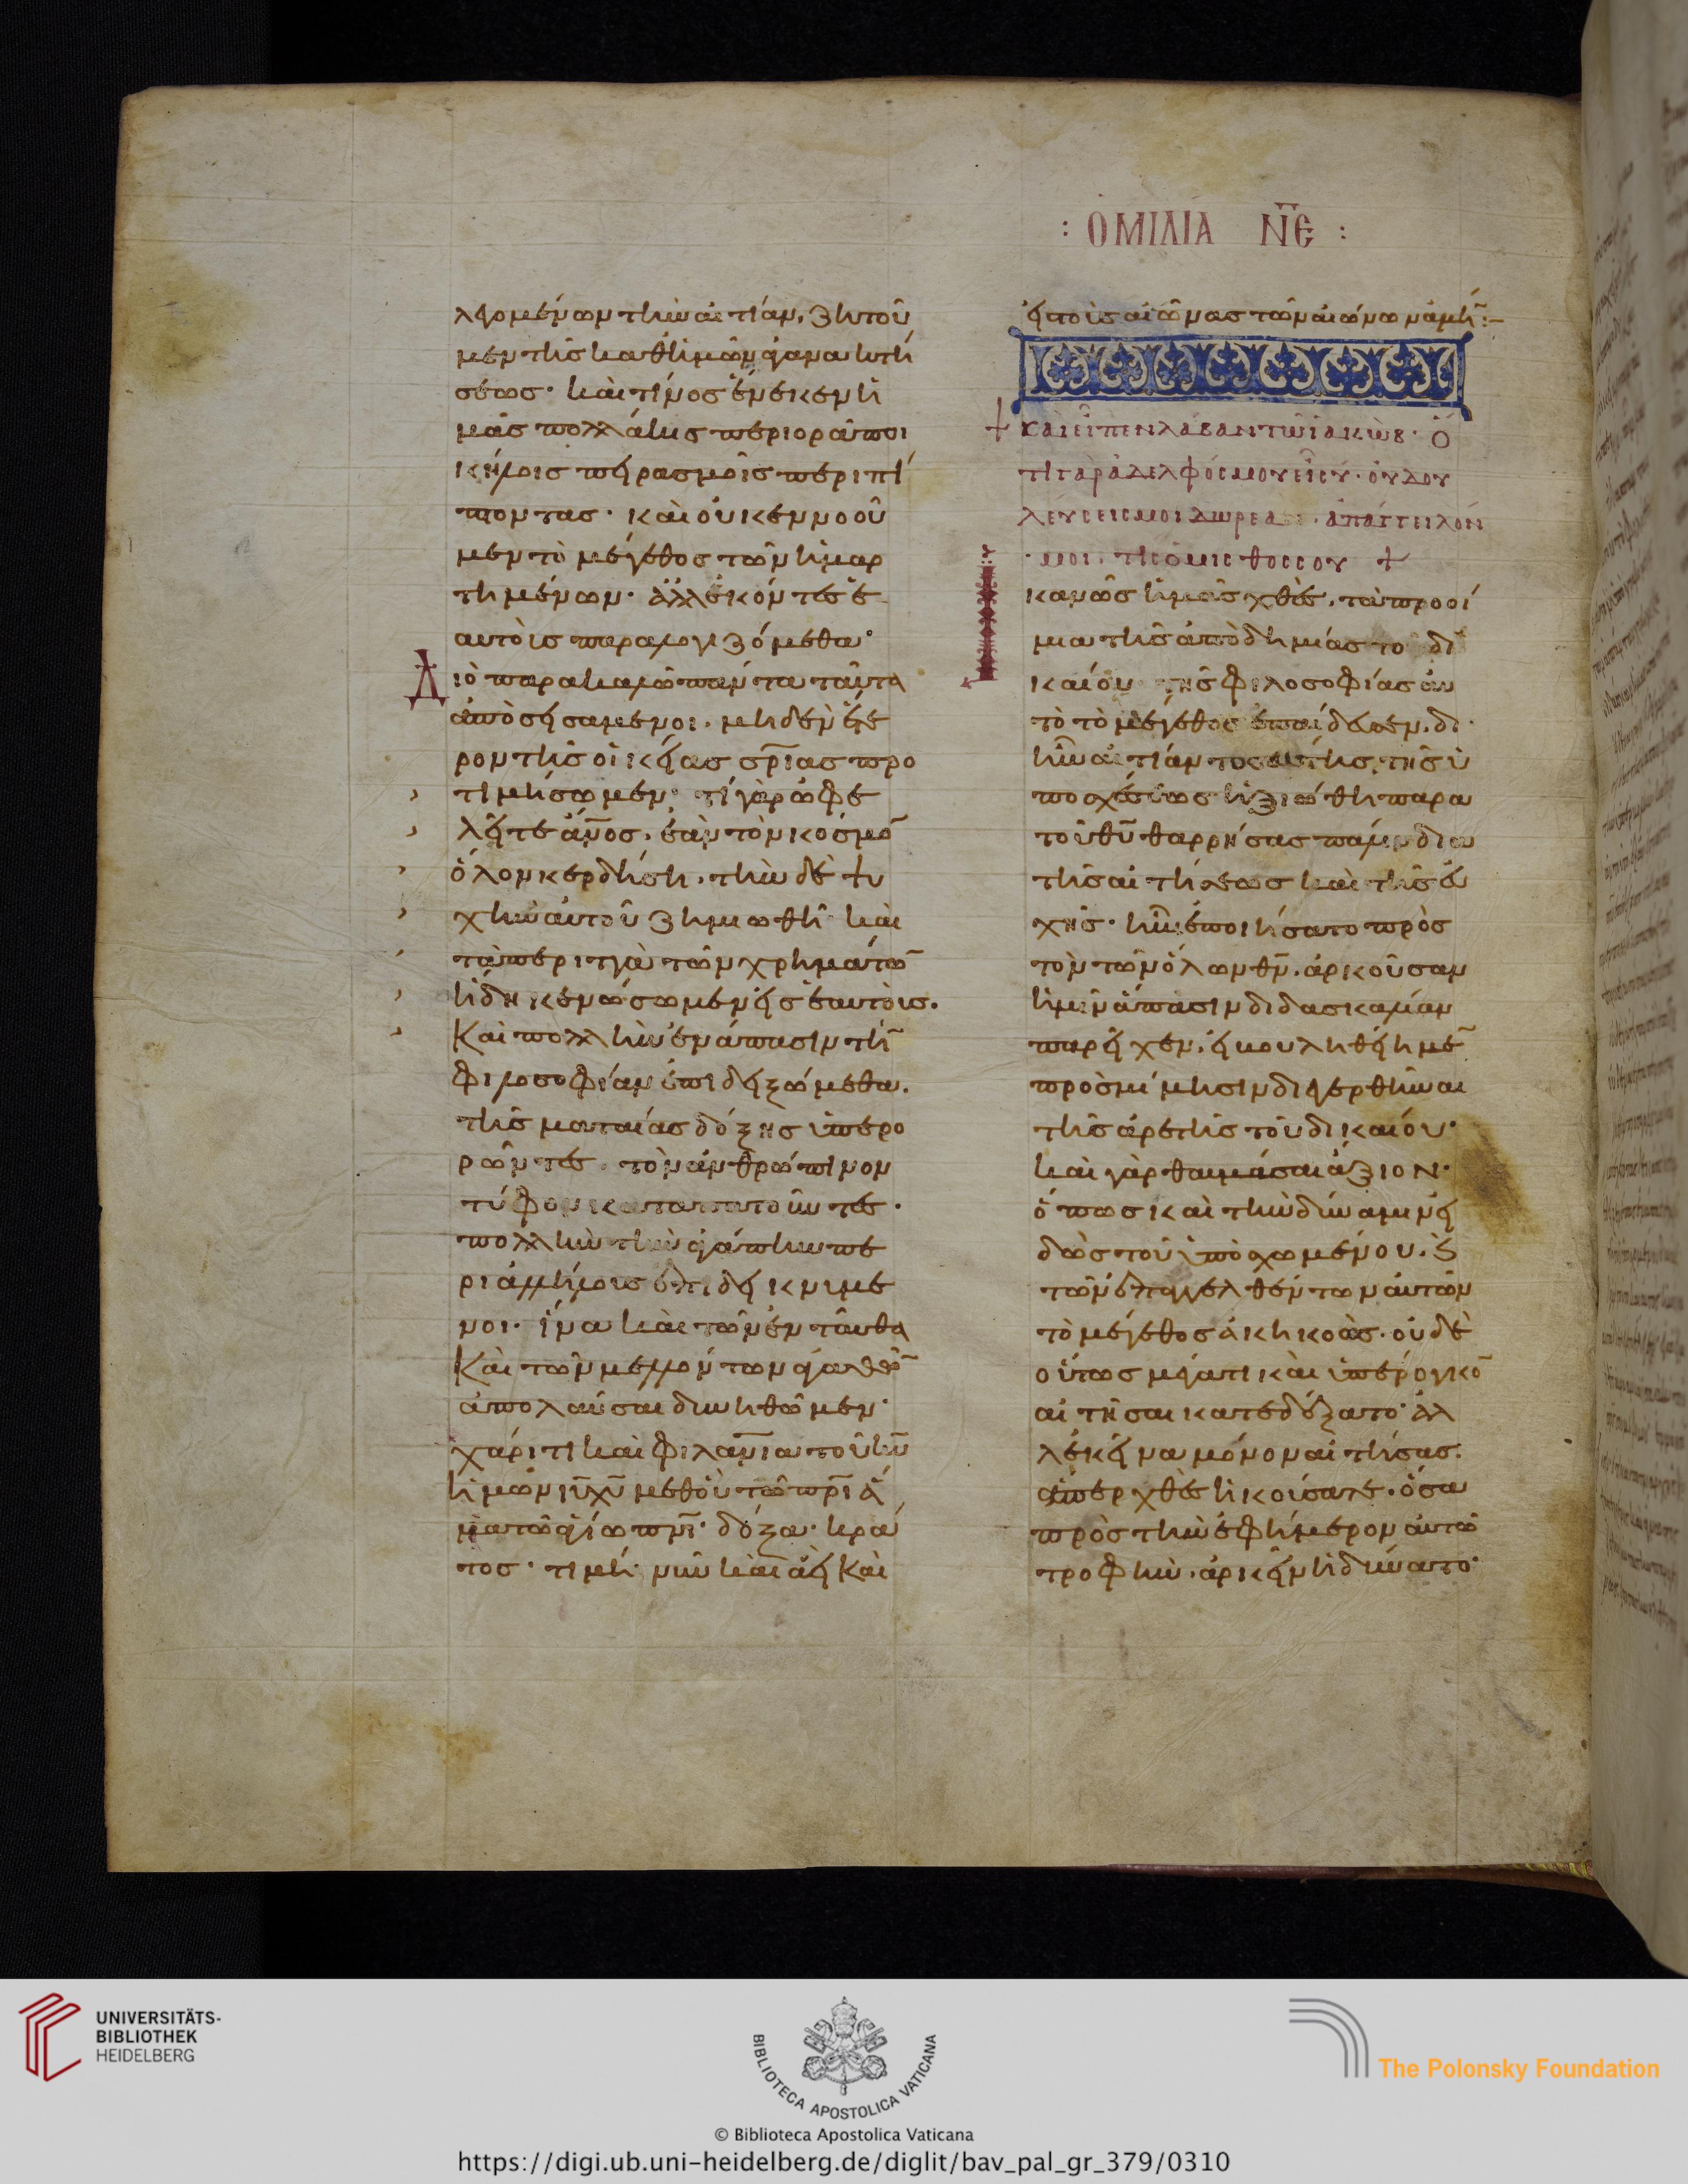 : ὉΜΙΛΙΑ ΝΕ :
λεγομένων τὴν αἰτίαν, ζητοῦ
μεν τῆς καθ' ἡμῶν ἀγανακτή
σεως· καὶ τίνος ἕνεκεν ἡ
μᾶς πολλάκις περιορᾶ ποι
κίλοις πειρασμοῖς περιπί
πτοντας· καὶ οὐκ ἐννοοῦ
μεν τὸ μέγεθος τῶν ἡμαρ
τημένων· ἀλλ' ἑκόντες ἑ
αυτοῖς παραλογιζόμεθα·
Διὸ παρακαλῶ πάντα ταῦτα
ἀποσεισάμενοι, μηδὲν ἕτε
ρον τῆς οἰκείας σρ̅ιας προ
τιμήσωμεν· τί γὰρ ὠφε
λεῖτε ἄν̅ος, ἐὰν τὸν κόσμο̅
ὅλον κερδήση, τὴν δὲ ψυ
χὴν αὐτοῦ ζημιωθῆ· καὶ
τὰ περιττὰ τῶν χρημάτω̅
ἤδη κενώσωμεν εἰς ἑαυτοὺς.
Καὶ πολλὴν ἐν ἅπασιν τὴ̅
φιλοσοφίαν ἐπιδειξώμεθα.
τῆς ματαίας δόξης ὑπερο
ρῶντες, τὸν ἀνθρώπινον
τύφον καταπατοῦντες·
πολλὴν τὴν ἀγάπην πε
ρὶ ἀλλήλους ἐπιδεικνύμε
νοι· ἵνα καὶ τῶν ἐνταῦθα
καὶ τῶν μελλόντων ἀγαθῶ̅
ἀπολαῦσαι δυνηθῶμεν·
χάριτι καὶ φιλαν̅ια τοῦ κυ̅
ἡμῶν ιυ̅ χυ̅ μεθ' οὗ τῶ πρ̅ι ἅ
μα τῶ ἁγίω πν̅ι· δόξα· κρά
τος· τιμή· νῦν καὶ ἀεὶ καὶ
εἰς τοὺς αἰῶνας τῶν αἰώνων ἀμή̅ν:–
+ καὶ εἶπεν λάβαν τῶ ἰακώβ· ὅ
τι γὰρ ἀδελφός μου εἶ σύ· οὐ δου
λεύσεις μοι δωρεάν· ἀπάγγειλόν
μοι, τίς ὁ μισθός σου +
Ἱκανῶς ἡμᾶς χθὲς, τὰ προοί
μια τῆς ἀποδημίας το δι
καίου τῆς φιλοσοφίας αὐ
τὸ τὸ μέγεθος ἐπαίδευσεν, δι'
ἣν αἰτίαν τοσαύτης, τῆς ὑ
ποσχέσεως ἠξιώθη παρὰ
τοῦ θυ̅ θαρρήσας πάλιν διὰ
τῆς αἰτήσεως καὶ τῆς εὐ
χῆς· ἣν ἐποιήσατο πρὸς
τὸν τῶν ὅλων θν̅, ἀρκοῦσαν
ἡμῖν ἅπασιν διδασκαλίαν
παρεῖχεν, εἰ βουληθείημε̅
πρὸς μίμησιν διεγερθῆναι
τῆς ἀρετῆς τοῦ δικαίου·
καὶ γὰρ θαυμάσαι ἄξιον·
ὅπως καὶ τὴν δύναμιν εἰ
δὼς τοῦ ὑποσχομένου, ἐ
τῶν ἐπαγγελθέντων αὐτῶν
τὸ μέγεθος ἀκηκοὼς· οὐδὲ
οὕτως μέγα τι καὶ ὑπέρογκο̅
αἰτῆσαι κατεδέξατο· ἀλ
λ' ἐκεῖνα μόνον αἰτήσας.
ἅπερ χθὲς ἠκούσατε· ὅσα
πρὸς τὴν ἐφήμερον αὐτῶ
τροφὴν, ἀρκεῖν ἠδύνατο·
UNIVERSITÄTS-
BIBLIOTHEK
HEIDELBERG
BIBLIOTECA APOSTOLICA VATICANA
The Polonsky Foundation
© Biblioteca Apostolica Vaticana
https://digi.ub.uni-heidelberg.de/diglit/bav_pal_gr_379/0310